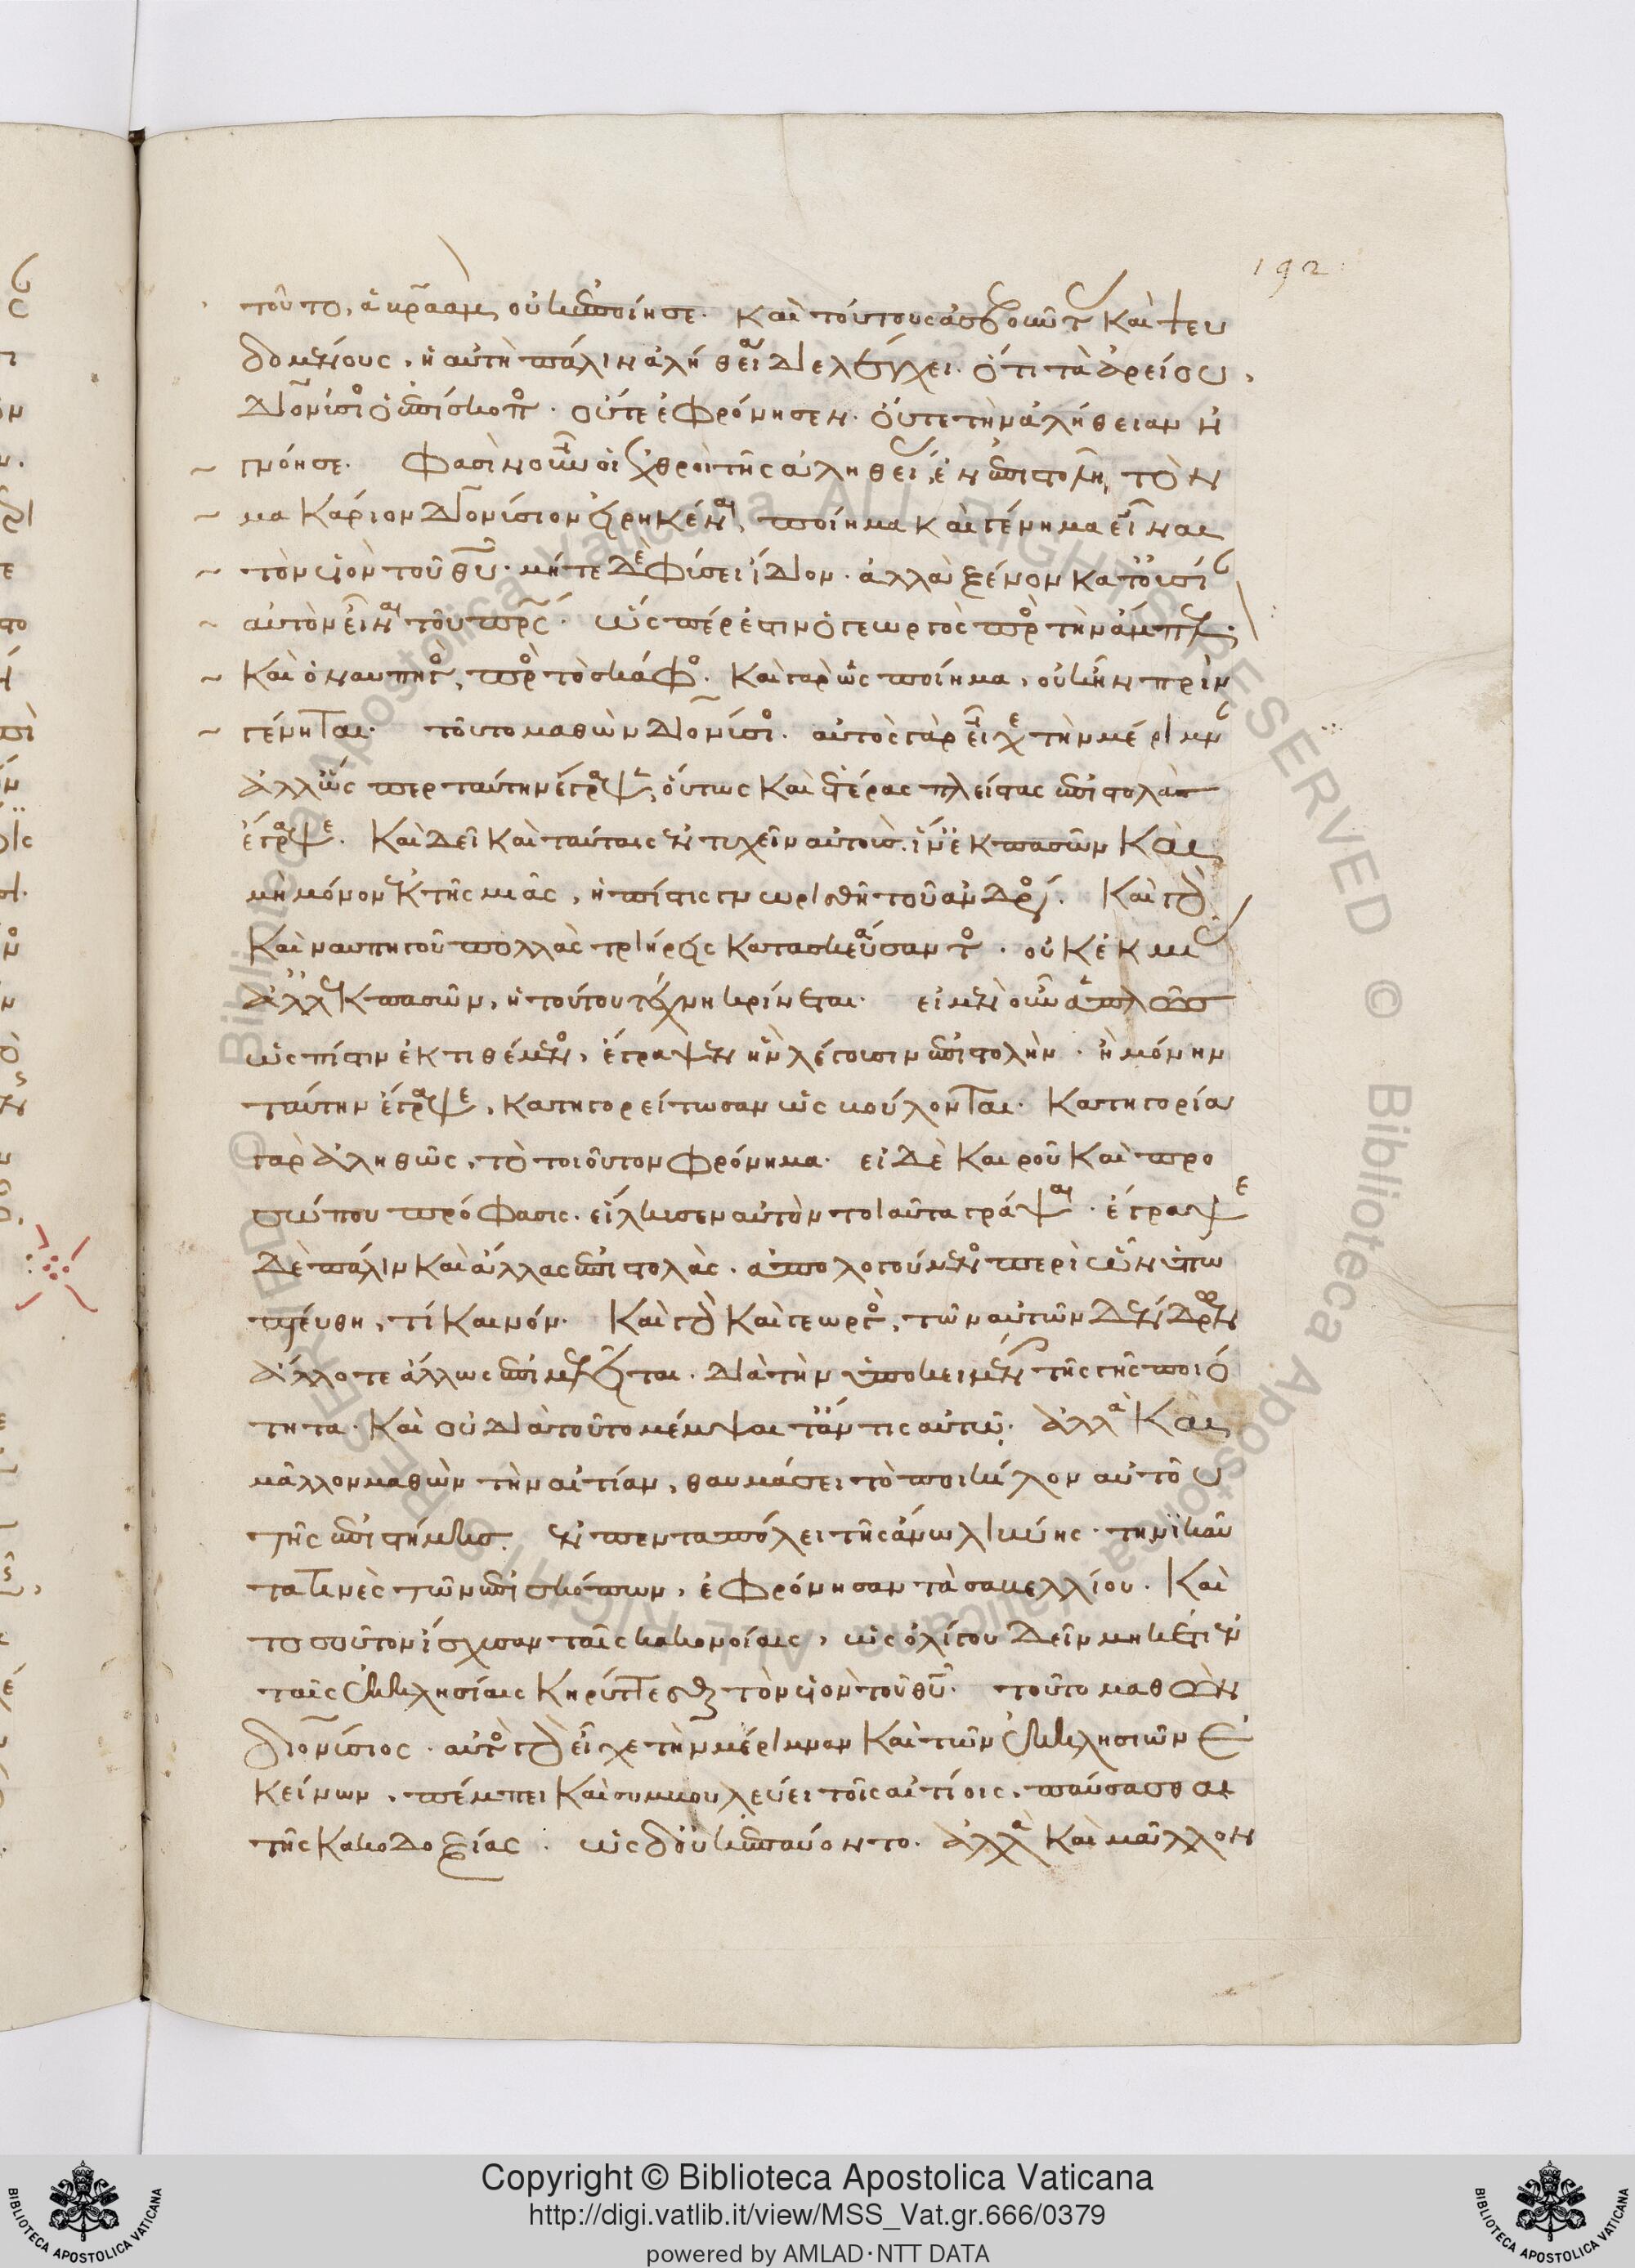 192
τοῦτο, ἀβραὰμ οὐκ ἐποίησε. καὶ τούτους ἀσεβοῦντ καὶ ψευ
δομένους, ἡ αὐτὴ πάλιν ἀλήθεια διελέγχει. ὅτι τὰ ἀρείου,
διονύσιος ὁ ἐπίσκοπος. οὔτε ἐφρόνησεν. οὔτε τὴν ἀλήθειαν ἠ
γνόησε. Φασὶν οὖν οἱ ἐχθροὶ τῆς ἀληθείας, ἐν ἐπιστολῇ τὸν
μακάριον διονύσιον εἰρηκέναι, ποίημα καὶ γένημα εἶναι
τὸν υἱὸν τοῦ θυ. μήτε δὲ φύσει ἴδιον. ἀλλὰ ξένον κατ' οὐσίαν
αὐτὸν εἶναι τοῦ πρς. ὥσπέρ ἐστιν ὁ γεωργὸς πρὸς τὴν ἄμπελον.
καὶ ὁ ναυπηγὸς, πρὸς τὸ σκάφος. καὶ γὰρ ὡς ποίημα, οὐκ ἦν πρὶν
γένηται. τοῦτο μαθὼν διονύσιος. αὐτὸς γὰρ εἶχε τὴν μέριμναν
ἀλλ' ὥσπερ ταύτην ἔγραψεν, οὕτως καὶ ἑτέρας πλείστας ἐπιστολὰς
ἔγραψε. καὶ δεῖ καὶ ταύταις ἐντυχεῖν αὐτούς. ἵν' ἐκ πασῶν καὶ
μὴ μόνον ἐκ τῆς μιᾶς, ἡ πίστις γνωρισθῇ τοῦ ἀνδρός. καὶ γὰρ
καὶ ναυπηγοῦ πολλὰς τριήρεις κατασκευάσαντος. οὐκ ἐκ μιᾶς
ἀλλ' ἐκ πασῶν, ἡ τούτου τέχνη κρίνεται. εἰ μὲν οὖν ἁπλῶς
ὡς πίστιν ἐκτιθέμενος, ἔγραψεν ἣν λέγουσιν ἐπιστολὴν. ἢ μόνην
ταύτην ἔγραψε, κατηγορείτωσαν ὡς βούλονται. κατηγορία
γὰρ ἀληθῶς, τὸ τοιοῦτον φρόνημα. εἰ δὲ καιροῦ καὶ προ
σώπου πρόφασις. εἵλκυσεν αὐτὸν τοιαῦτα γράψαι. ἔγραψε
δὲ πάλιν καὶ ἄλλας ἐπιστολὰς. ἀπολογούμενος περὶ ὧν ὑπω
πτεύθη, τί καινόν. καὶ γὰρ καὶ γεωργὸς, τῶν αὐτῶν δένδρων
ἄλλοτε ἄλλως ἐπιμελεῖται. διὰ τὴν ὑποκειμένην τῆς γῆς ποιό
τητα. καὶ οὐ διὰ τοῦτο μέμψαιτ' ἄν τις αὐτῷ. ἀλλὰ καὶ
μᾶλλον μαθὼν τὴν αἰτίαν, θαυμάσει τὸ ποικίλον αὐτοῦ
τῆς ἐπιστήμης. ἐν πενταπόλει τῆς ἄνω λιβύης. τηνικαῦ
τα τινὲς τῶν ἐπισκόπων, ἐφρόνησαν τὰ σαβελλίου. καὶ
τοσοῦτον ἴσχυσαν ταῖς κακονοίαις, ὡς ὀλίγου δεῖν μηκέτι ἐν
ταῖς ἐκκλησίαις κηρύττεσθαι τὸν υἱὸν τοῦ θυ. τοῦτο μαθὼν
διονύσιος. αὐτὸς γὰρ εἶχε τὴν μέριμναν καὶ τῶν ἐκκλησιῶν ἐ
κείνων, πέμπει καὶ συμβουλεύει τοῖς αἰτίοις, παύσασθαι
τῆς κακοδοξίας. ὡς δ' οὐκ ἐπαύοντο. ἀλλὰ καὶ μᾶλλον
Copyright © Biblioteca Apostolica Vaticana
http://digi.vatlib.it/view/MSS_Vat.gr.666/0379
powered by AMLAD·NTT DATA